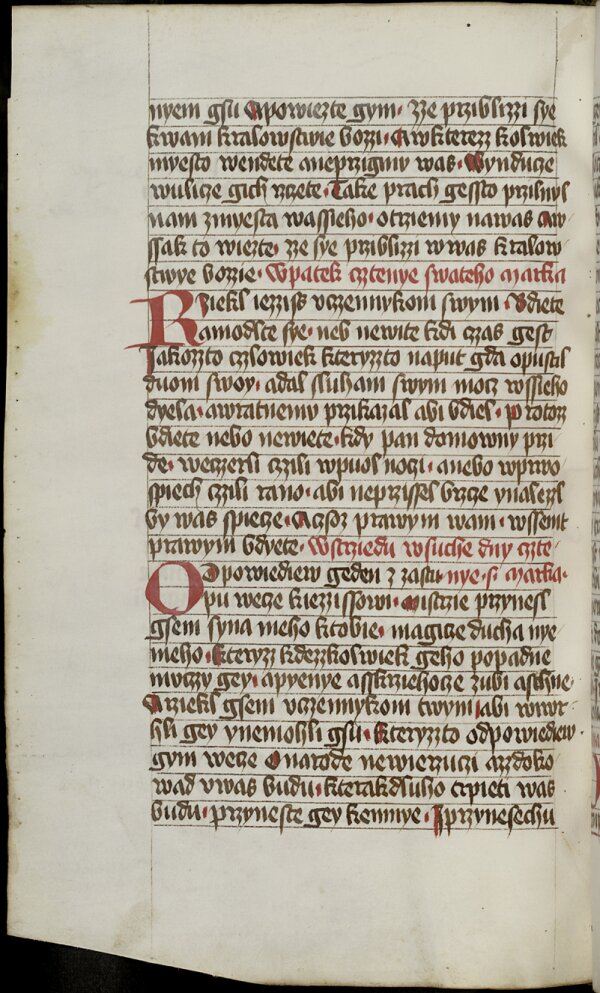 nyem gsu Apowiezte gym· Zze prziblizzi sye
kwam kralowstwie bozzi· Awkterezz kolwiek
myesto wendete aneprzigmy was· Wynducze
wulicze gich rzcete· Take prach gessto przilnyl
nam zmyesta wassieho· otrziemy nawas Aw
ssak to wiezte· zze sye priblizi wwas kralow
stwye bozie· Wpatek cztenye swateho Marka
Rziekl iezziss vczennykom swym· Bdiete
amodlte sye· neb newite kdi czas gest
Jakozto czlowiek kteryzto naput gda opustil
duom swoy· adal sluham swym mocz wssieho
dyela· awratnemu przikazal abi bdiel· Protoz
bdiete nebo newiete· kdy pan domowny przi
de· weczerli czili wpuol noczi· anebo wprwo
spiech czili rano· abi neprzissel brzcze ynalezl
by was spicze· Aczoz prawym wam· wssem
prawym bdyete· Wstrziedu wsuche dny czte
Odpowiediew geden z zastu· nye·s· Marka·
pu wecze kiezzissowi· Mistrzie przynesl
gsem syna meho ktobie· magicze ducha nye
meho· Kteryzz kdezzkolwiek geho popadne
muczy gey· apyenye asskrziehocze zubi aschne·
Arziekl gsem vczennykom twym abi wiwr
hli gey ynemohli gsu· Kteryzto odpowiediew·
gym wecze O narode newierzuczi azzdoko
wad vwas budu· kterakdluho trpieti was
budu· przyneste gey kemnye· Jprzynesechu